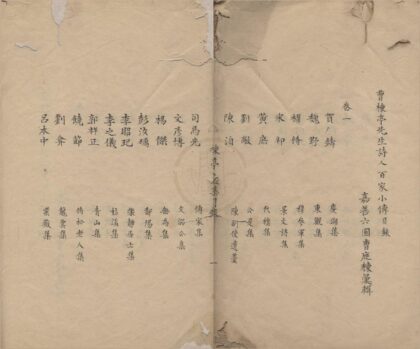 曹棟亭先生詩人百家小傳目錄
嘉善六圃曹庭棟彙輯
卷一
賀鑄 慶湖集
魏野 東觀集
穆脩 穆參軍集
宋祁 景文詩集
黃庶 伐檀集
劉敞 公是集
陳泊 陳副使遺藁
司馬光 傳家集
文彥博 文潞公集
楊傑 無為集
彭汝礪 鄱陽集
李昭玘 樂靜居士集
李之儀 姑溪集
郭祥正 青山集
饒節 倚松老人集
劉弇 龍雲集
呂本中 紫薇集